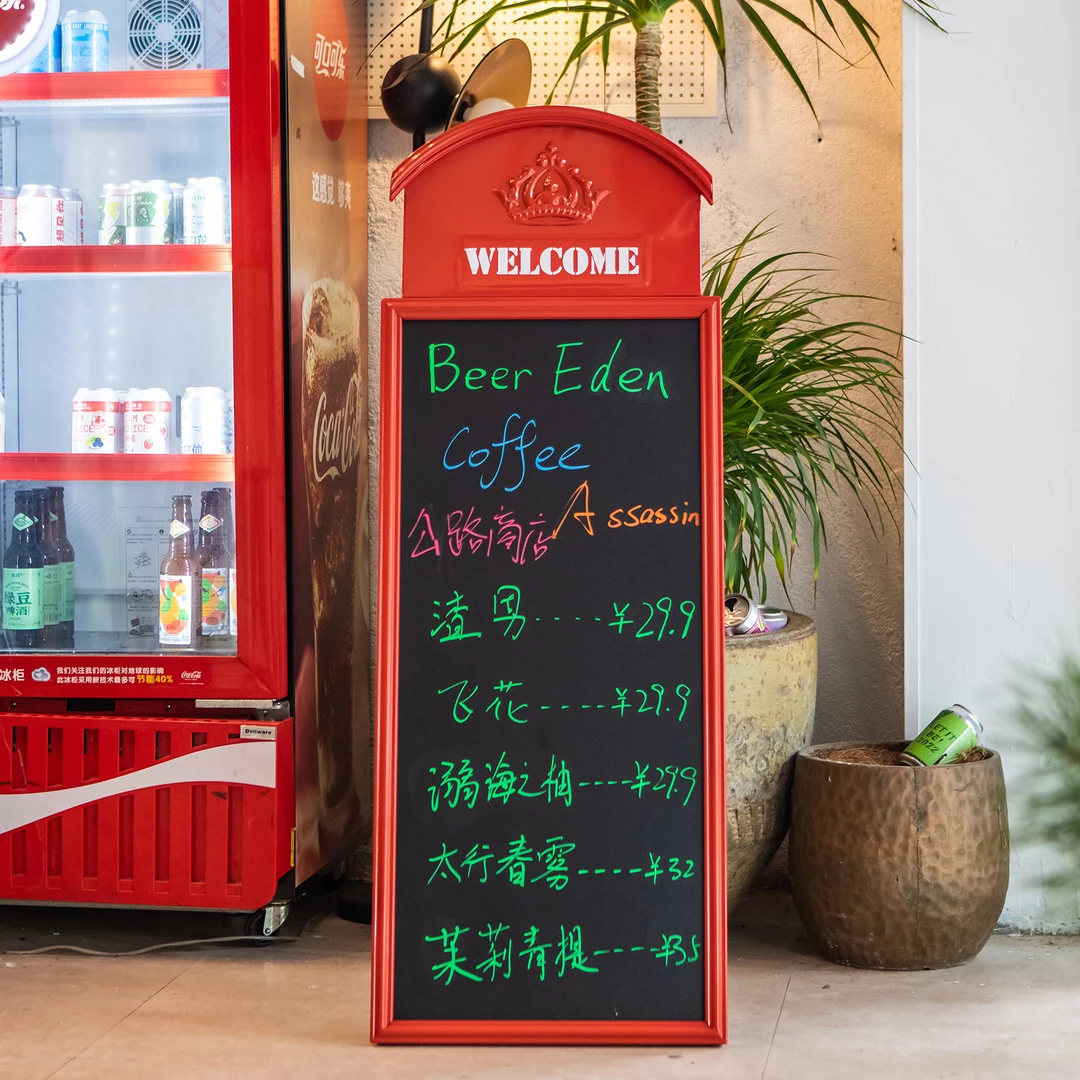 WELCOME
Beer Eden
Coffee
公路商店 Assassin
渣男·····￥29.9
飞花-----￥29.9
溺海之柚----￥29.9
太行春雾-----￥32
茉莉青提----￥35
可口可乐
这感觉 够爽
Coca-Cola
绿豆
啤酒
冰柜
我们关注我们的冰柜对地球的影响
此冰柜采用新技术最多可节能40%
Coca-Cola
2022